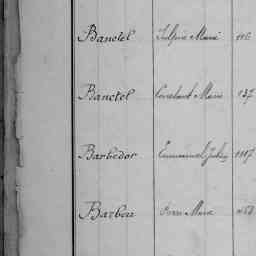 Banctel Sulpice Marie 116
Banctel Constant Marie 137
Barbedor Emmanuel Jules 1117
Barbou Pierre Marie